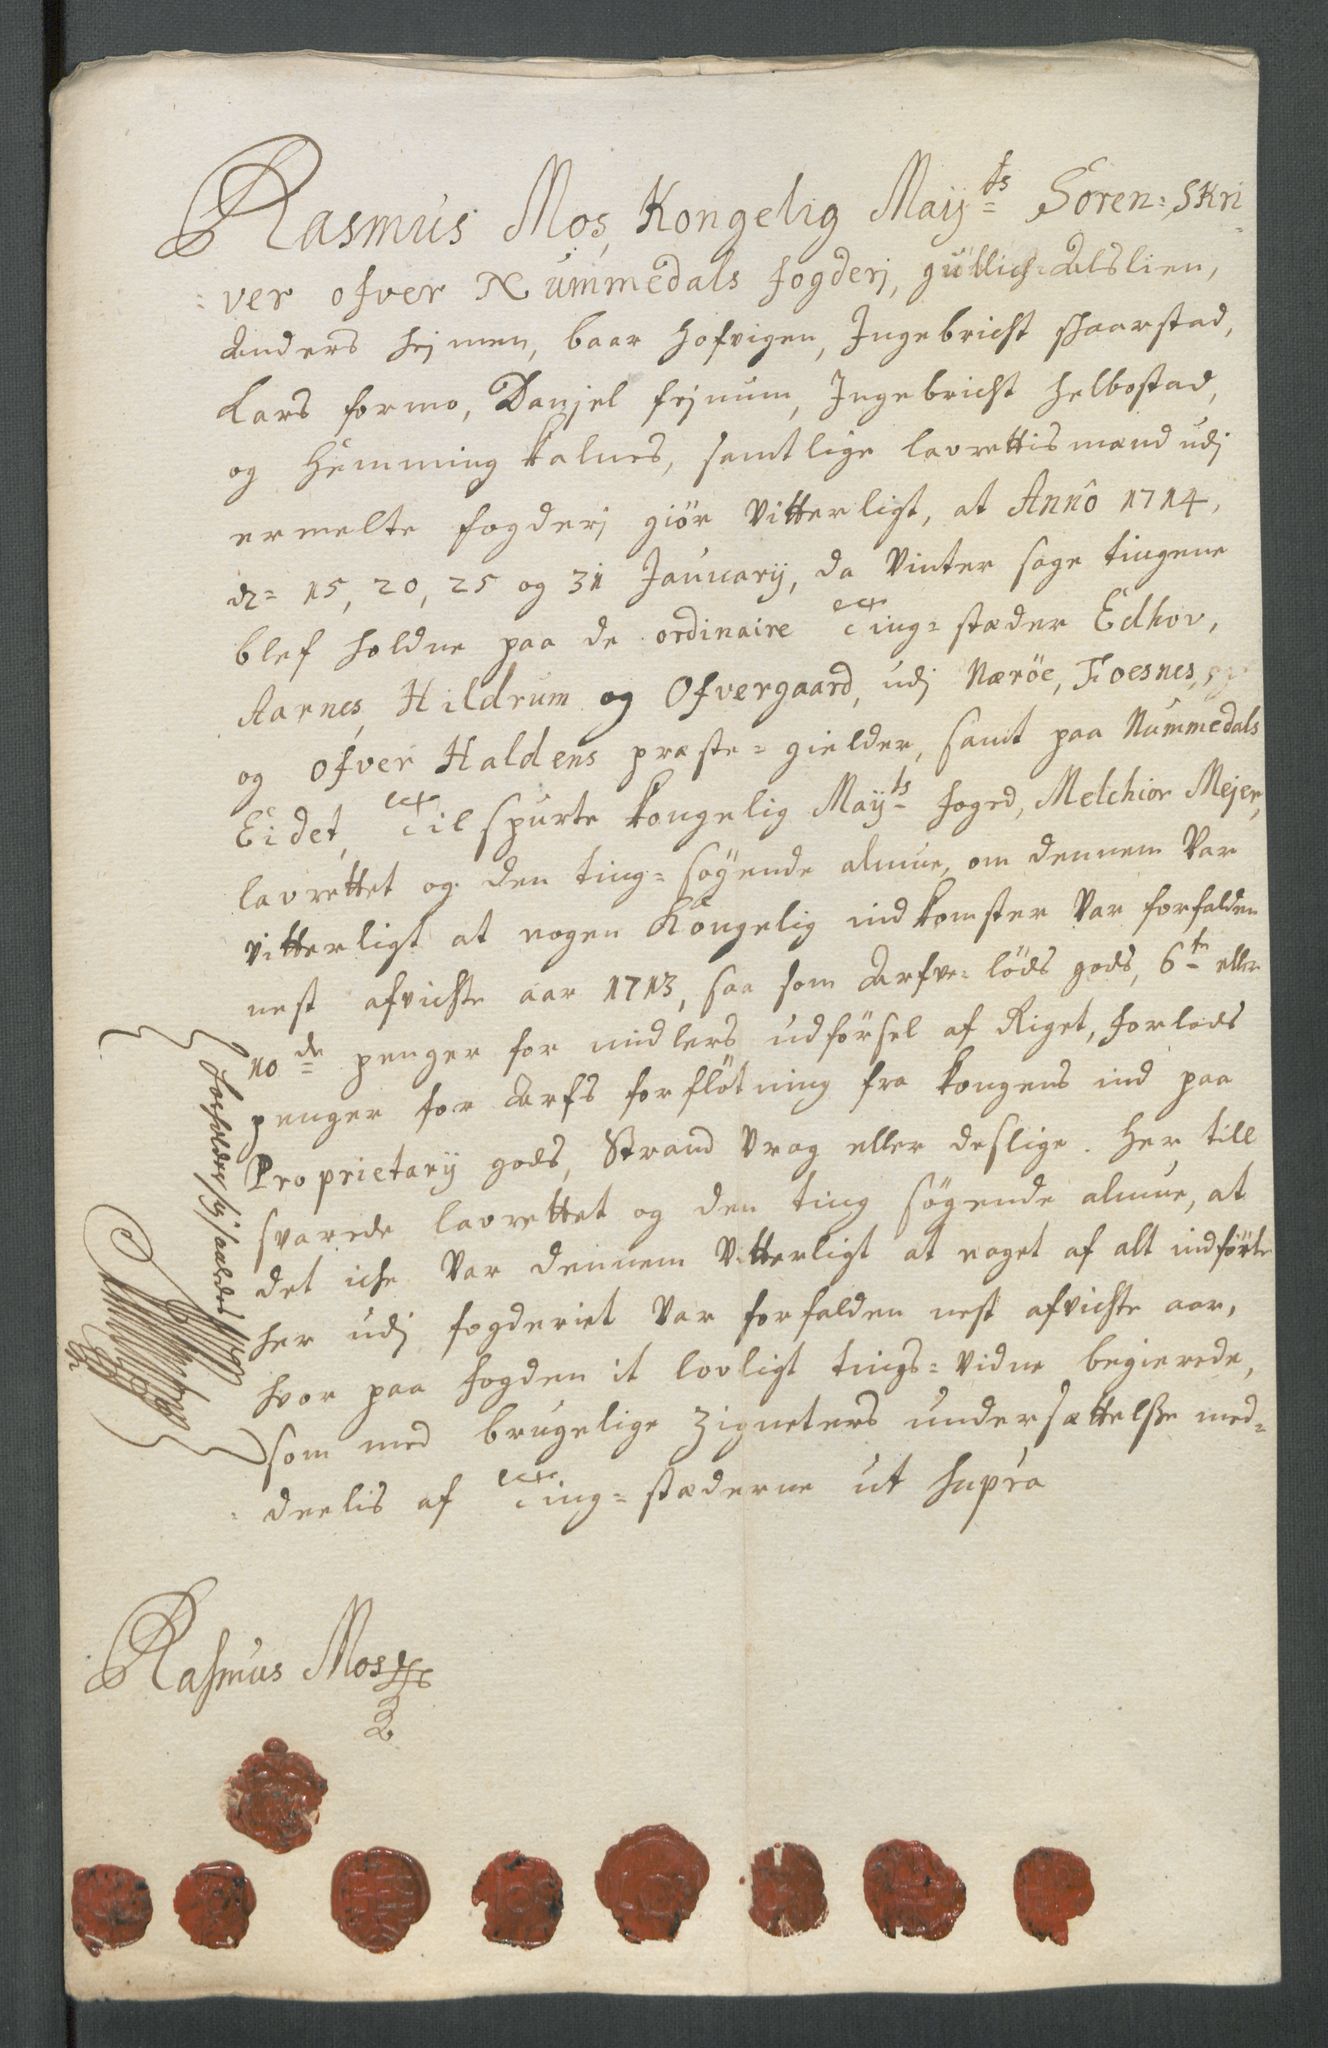 Rasmus Mos, Kongelig Mayts Soren=Skri=
=ver ofver Nummedals fogderj, gullich Alslien,
Anders hejmen, baar hofvigen, Ingebricht skaarstad,
Lars formo, Danjel fejnum, Ingebricht helbostad,
og Hemming Kalnes, samtlige lavrettismænd udj
ermelte fogderj giör Vitterligt, at Anno 1714,
d= 15, 20, 25 og 31 Januarij, da Vinter sage tingene
blef holdne paa de ordinaire Ting=stæder Edhov,
Aarnes, Hildrum og Ofvergaard, udj Næröe, Foesnes,
og Ofver Haldens præste=gielder, samt paa Nummedals
Eidet, Tilspurte Kongelig Mayts foged, Melchior Mejer,
lavrettet og den ting=söyende almue, om dennem Var
Vitterligt at nogen Kongelig indkomster Var forfalden
nest afvichte aar 1713, saa som Arfve=löds gods, 6te eller
10de penger for midlers udförsel af Riget, forlods
penger for Arfs forflötning fra Kongens ind paa
Proprietarij gods, Strand Vrag eller deslige. Her till
svarede lavrettet og den ting söyende almue, at
det iche Var dennem Vitterligt at noget af alt indförte
her udj fogderiet Var forfalden nest afvichte aar,
hvor paa fogden it lovligt tings=Vidne begierede,
som med brugelige Zigneters undersættelsse med=
=deelis af Ting=stæderne ut supra
Rasmus Mos
forholder sig saaledes